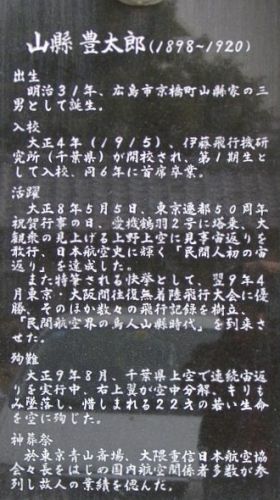 山縣 豊太郎(1898~1920)
出生
明治31年、広島市京橋町山縣家の三
男として誕生。
入校
大正4年(1915)、伊藤飛行機研
究所(千葉県)が開校され、第1期生と
して入校、同6年に首席卒業。
活躍
大正8年5月5日、東京遷都50周年
祝賀行事の日、愛機鶴羽2号に塔乗、大
観衆の見上げる上野上空に見事宙返りを
敢行、日本航空史に輝く「民間人初の宙
返り」を達成した。
また特筆される快挙として、翌9年4
月東京・大阪間往復無着陸飛行大会に優
勝、そのほか数々の飛行記録を樹立、
「民間航空界の鳥人山縣時代」を到来さ
せた。
殉難
大正9年8月、千葉県上空で連続宙返
りを実行中、右上翼が空中分解、きりも
み墜落し、惜しまれる22才の若い生命
を空に殉じた。
神葬祭
於東京青山斎場、大隈重信日本航空協
会々長をはじめ国内航空関係者多数が参
列し故人の業績を偲んだ。